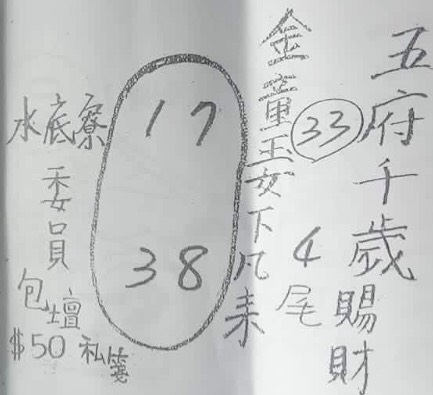 五府千歲賜財
33
4尾
金童玉女下凡来
17
38
水底寮
委員
包壇
$50 私箋